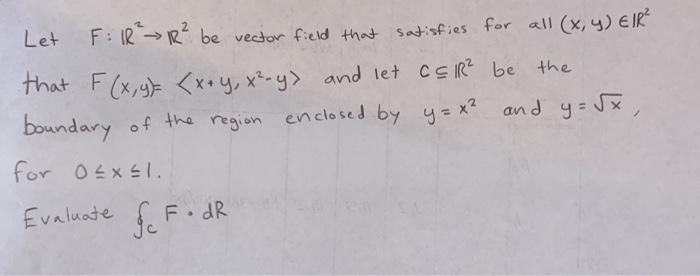 Let F: ℝ² → ℝ² be vector field that satisfies for all (x, y) ∈ ℝ²
that F(x,y)= <x+y, x²-y> and let C ⊆ ℝ² be the
boundary of the region enclosed by y = x² and y = √x,
for 0 ≤ x ≤ 1.
Evaluate ∮_C F · dR